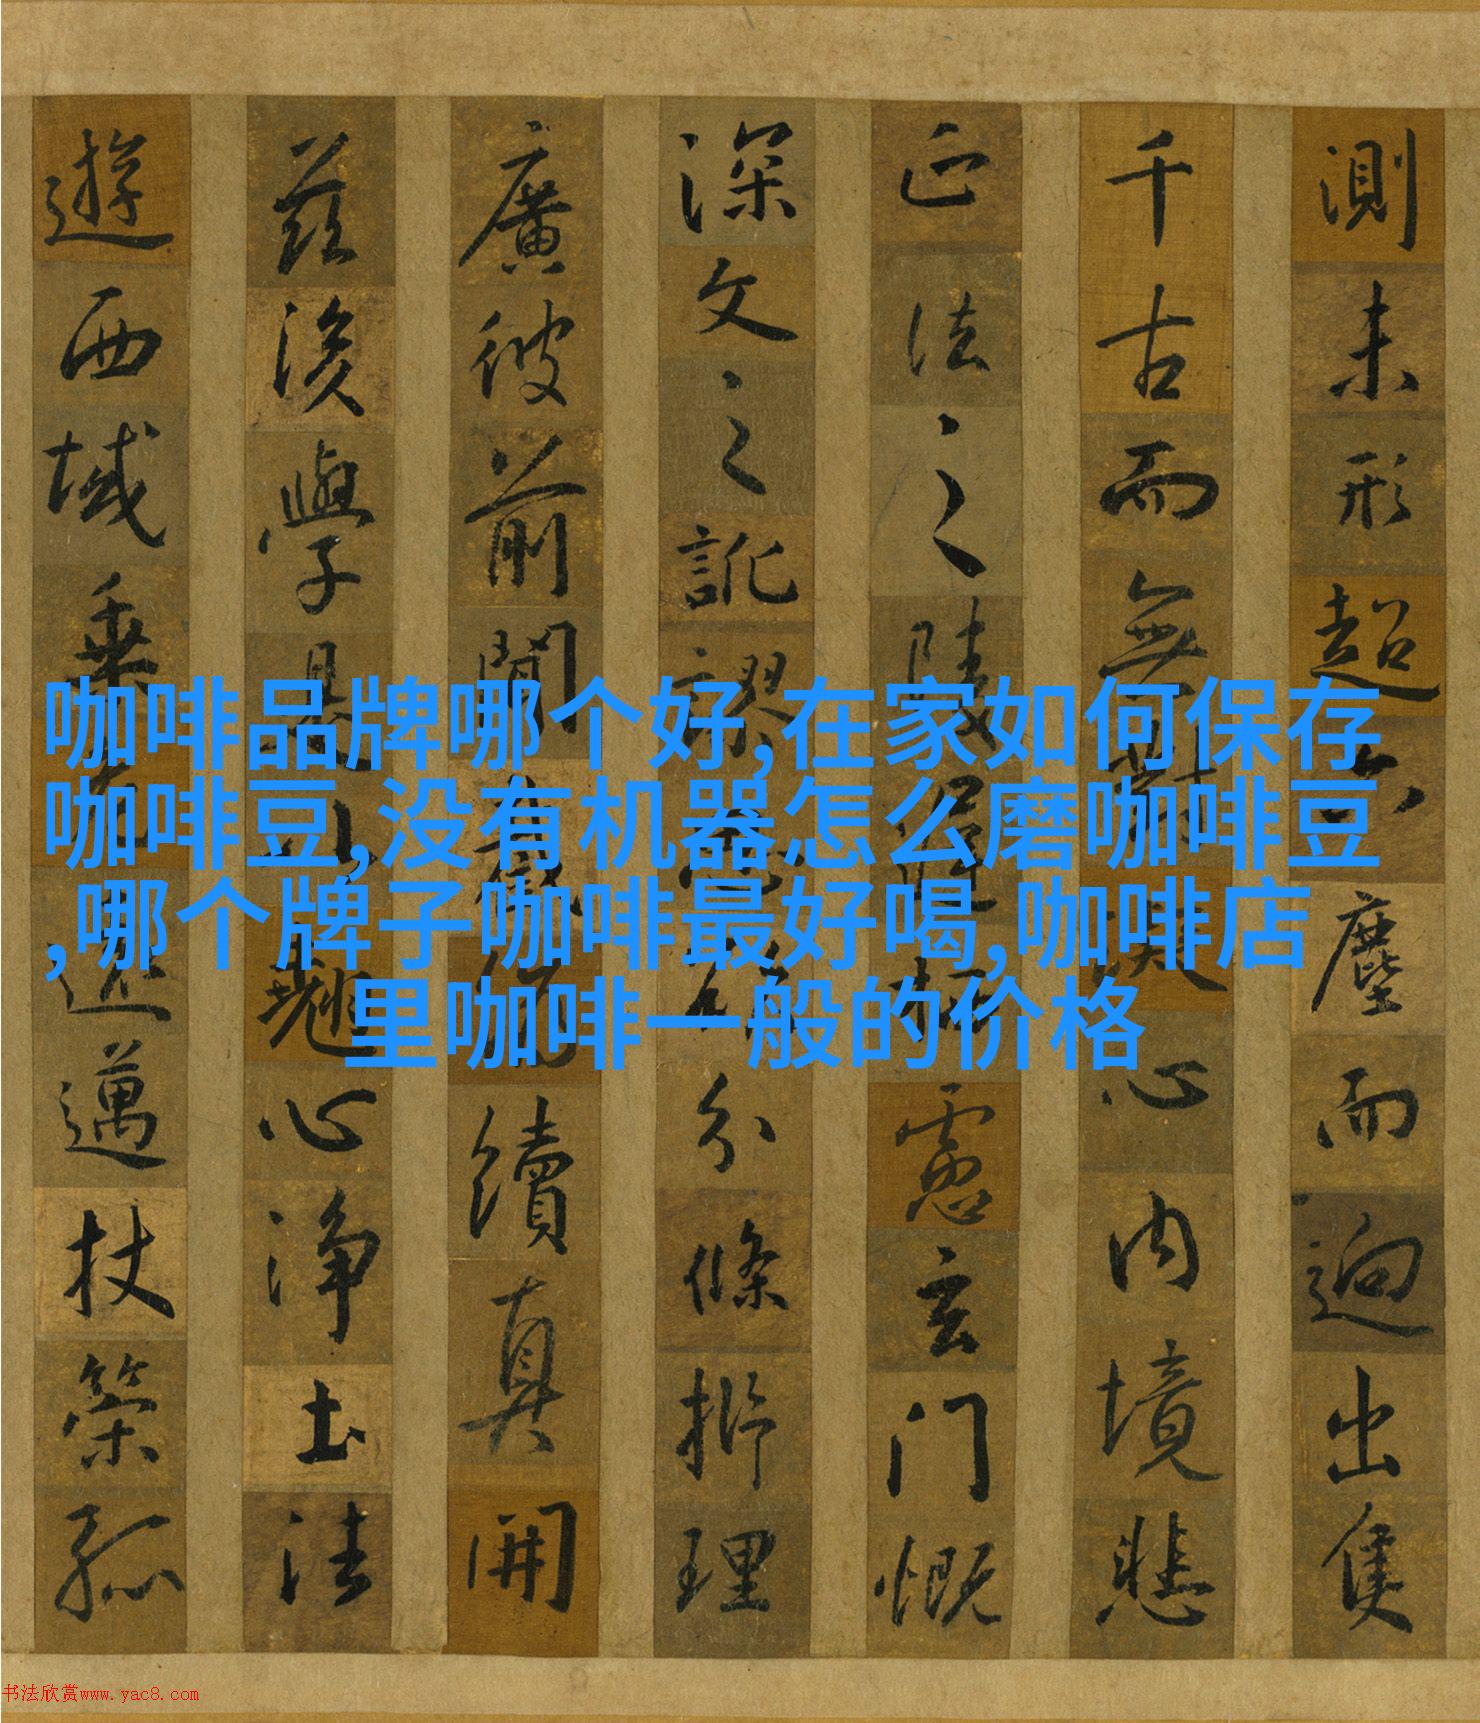 測未形超六塵而迥出隻
千古而無對凝心內境悲
正法之陵遲栖慮玄門慨
深文之訛謬思欲分條析理
廣彼前聞截偽續真開
茲後學是以翹心淨土法
遊西域乘危遠邁杖策孤
咖啡品牌哪个好,在家如何保存
咖啡豆,没有机器怎么磨咖啡豆
,哪个牌子咖啡最好喝,咖啡店
里咖啡一般的价格
书法欣赏www.yac8.com